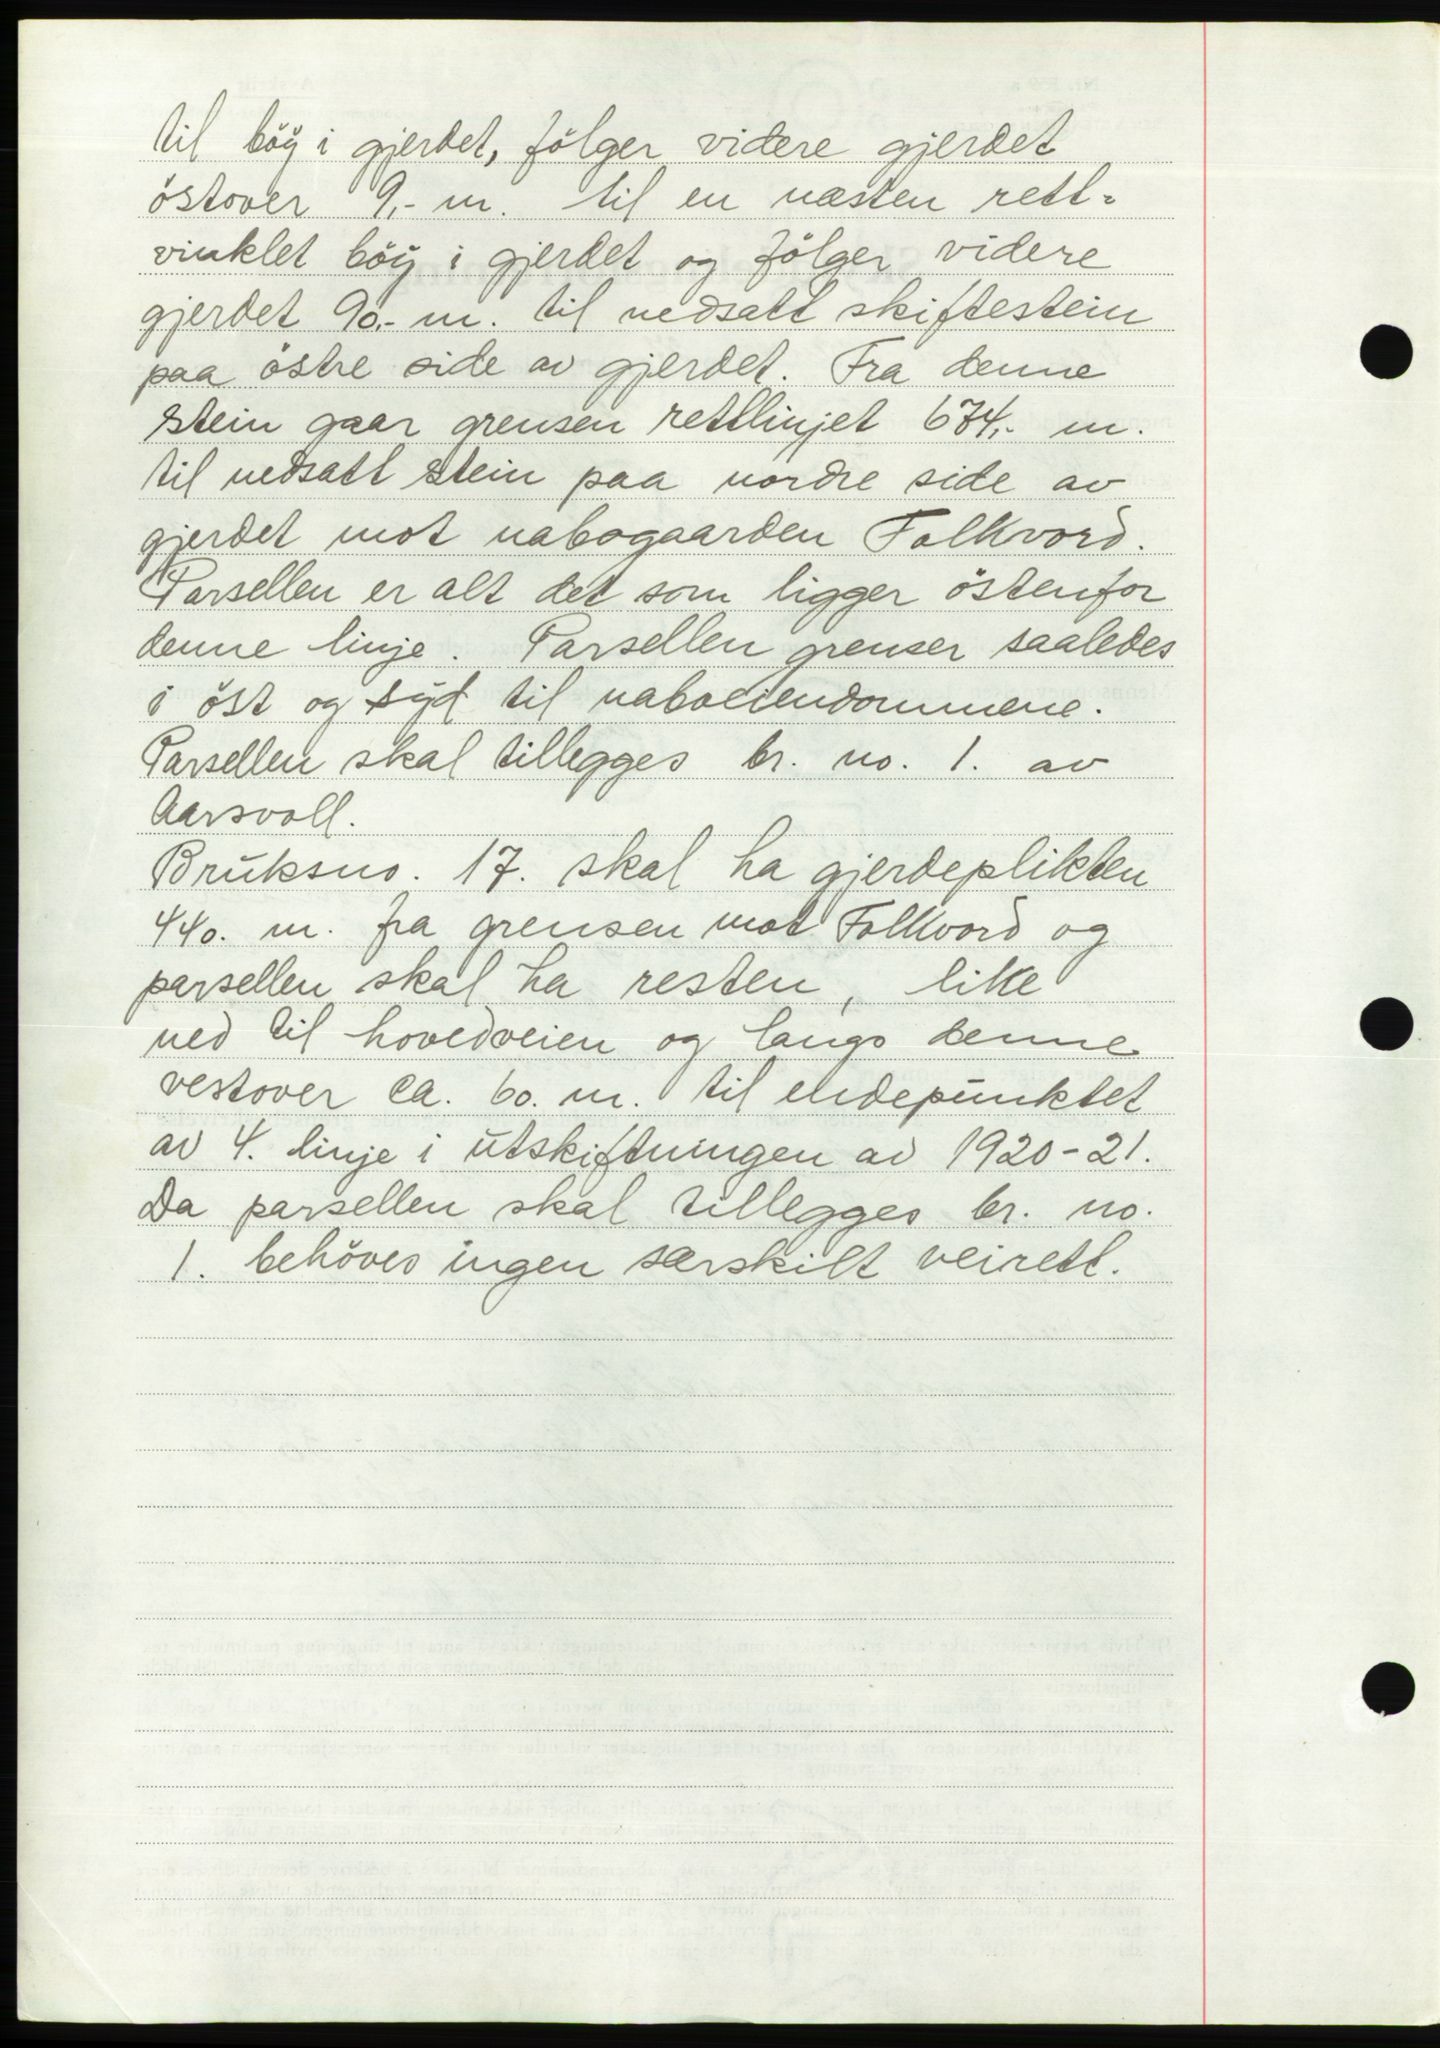 til böÿ i gjerdet, fölger videre gjerdet
östover 9,- m. til en næsten rett-
vinklet böÿ i gjerdet og fölger videre
gjerdet 90,- m. til nedsatt skiftestein
paa östre side av gjerdet. Fra denne
stein gaar grensen rettlinjet 674,- m.
til nedsatt stein paa nordre side av
gjerdet mot nabogaarden Folkvord.
Parsellen er alt det som ligger östenfor
denne linje. Parsellen grenser saaledes
i öst og syd til naboeiendommene.
Parsellen skal tillegges br. no. 1. av
Aarsvoll.
Bruksno. 17. skal ha gjerdeplikten
440. m. fra grensen mot Folkvord og
parsellen skal ha resten, like
ned til hovedveien og langs denne
vestover ca. 60. m. til endepunktet
av 4. linje i utskiftningen av 1920-21.
Da parsellen skal tillegges br. no.
1. behöves ingen særskilt veirett.